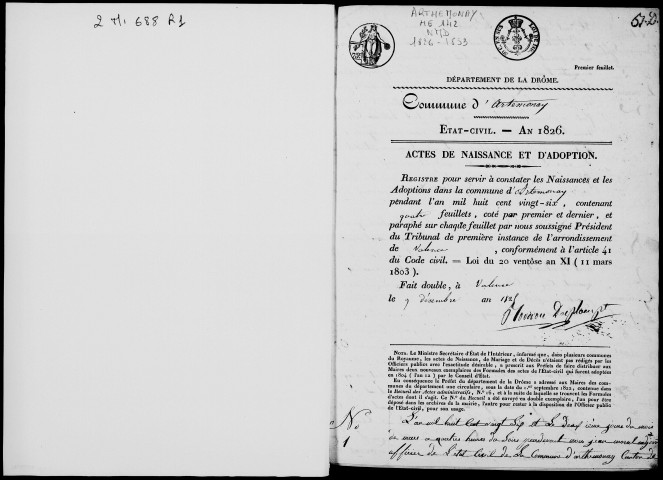 2 Mi 688 R1
ARTHEMONAY
ME 142
NMD
1826-1833
Premier feuillet.
DÉPARTEMENT DE LA DRÔME.
Commune d'Artemonay
ETAT-CIVIL. — AN 1826.
ACTES DE NAISSANCE ET D'ADOPTION.
REGISTRE pour servir à constater les Naissances et les
Adoptions dans la commune d'Artemonay
pendant l'an mil huit cent vingt-six, contenant
quatre feuillets, coté par premier et dernier, et
paraphé sur chaque feuillet par nous soussigné Président
du Tribunal de première instance de l'arrondissement
de Valence, conformément à l'article 41
du Code civil. = Loi du 20 ventôse an XI (11 mars
1803).
Fait double, à Valence
le 9 décembre an 1825
NOTA. Le Ministre Secrétaire d'État de l'Intérieur, informé que, dans plusieurs communes
du Royaume, les actes de Naissance, de Mariage et de Décès n'étaient pas rédigés par les
Officiers publics avec l'exactitude désirable, a prescrit aux Préfets de faire distribuer aux
Maires deux nouveaux exemplaires des Formules des actes de l'Etat-civil qui furent adoptées
en 1804 (l'an 12) par le Conseil d'État.
En conséquence le Préfet du département de la Drôme a adressé aux Maires des com-
munes du département une circulaire, sous la date du 1.er septembre 1822, contenue dans
le Recueil des Actes administratifs, N.º 16, et à la suite de laquelle se trouvent les Formules
d'actes dont il s'agit. Ce N.º du Recueil a été envoyé en double exemplaire, l'un pour être
déposé dans les archives de la mairie, l'autre pour rester à la disposition de l'Officier public
de l'Etat-civil, pour son usage.
No
1
L'an mil huit Cent vingt Six et le deux
de mars a quatre heures du Soir pardevant nous
officier de l'état Civil de la Commune d'arthemonay Canton de